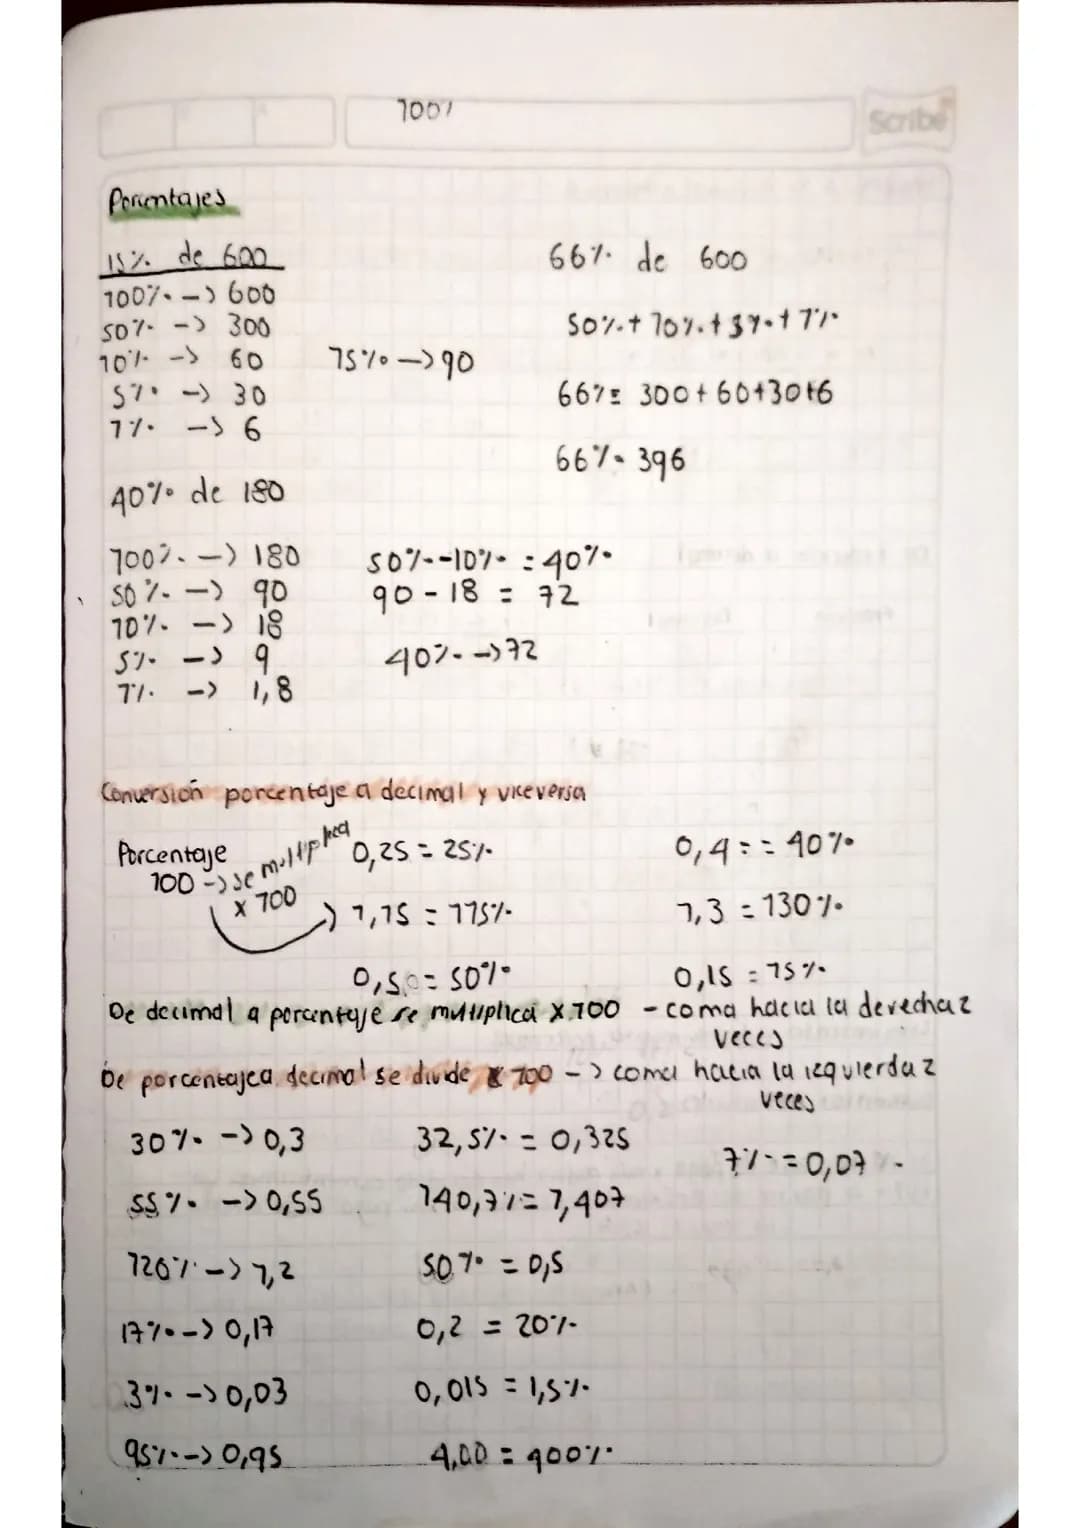 100%
Scribe
Porcentajes
15% de 600
100% -> 600
50% -> 300
10% -> 60
15% -> 90
5% -> 30
1% -> 6
66% de 600
50%+10%+5%+1%
66%= 300+60+30+6
66%= 396
40% de 180
100% -> 180
50% -> 90
10% -> 18
5% -> 9
1% -> 1,8
50%-10% = 40%
90-18 = 72
40% ->72
Conversión porcentaje a decimal y viceversa
Porcentaje
100 -> se multiplica
x 100
0,25 = 25%
1,15 = 115%
0,50 = 50%
0,4 = = 40%
1,3 = 130%
0,15 = 15%
De decimal a porcentaje se multiplica x 100 - coma hacia la derecha 2
veces
De porcentaje a decimal se divide 100 -> coma hacia la izquierda 2
veces
30% -> 0,3
55% -> 0,55
120% -> 1,2
17% -> 0,17
3% -> 0,03
95% -> 0,95
32,5% = 0,325
140,7% = 1,407
50% = 0,5
0,2 = 20%
0,015 = 1,5%
4,00 = 400%
7% = 0,07